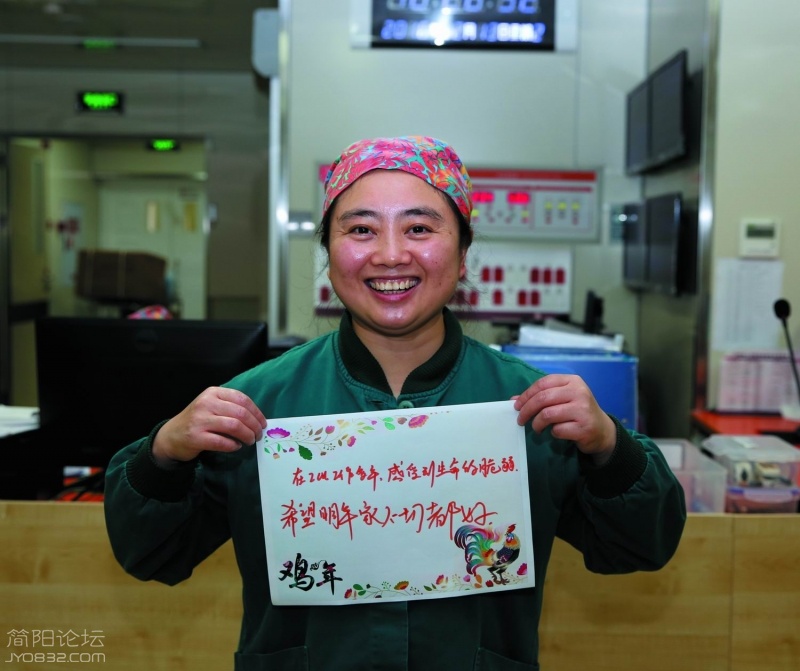 在ICU工作多年，感受到生命的脆弱.
希望明年家人一切都好.
鸡年
简阳论坛
JY0832.com